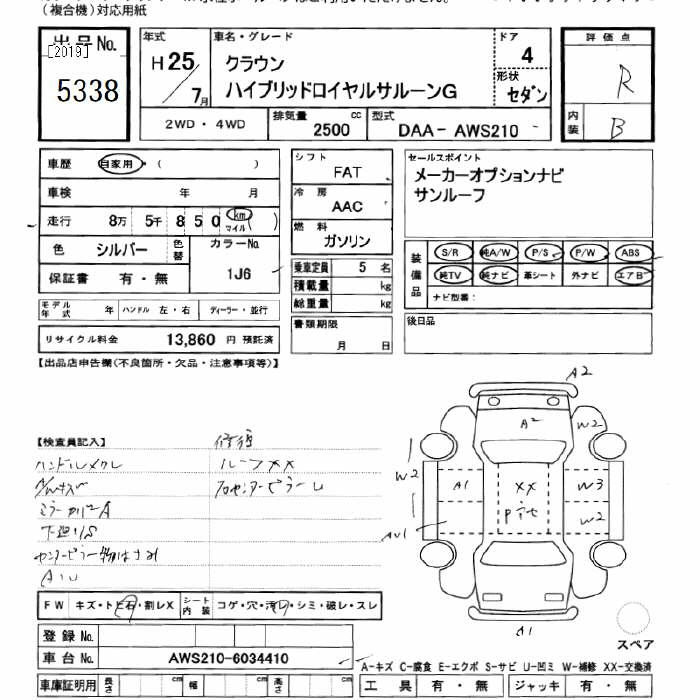 (複合機)対応用紙
出品No.
[2019]
5338
年式
H25/7月
車名・グレード
クラウン
ハイブリッドロイヤルサルーンG
ドア
4
形状
セダン
評価点
R
内装
B
2WD・4WD
排気量
2500 cc
型式
DAA-AWS210
車歴 自家用・( )
車検 年 月
走行 8万 5千 8 5 0 km マイル ( )
色 シルバー 色替
カラーNo.
1J6
保証書 有・無
モデル年式 年 ハンドル 左・右 ディーラー・並行
リサイクル料金 13,860 円 預託済
シフト
FAT
冷房
AAC
燃料
ガソリン
乗車定員 5 名
積載量 kg
総重量 kg
書類期限
月 日
セールスポイント
メーカーオプションナビ
サンルーフ
装備品
S/R 純A/W P/S P/W ABS
純TV 純ナビ 革シート 外ナビ エアB
ナビ型番:
後日品
【出品店申告欄(不良箇所・欠品・注意事項等)】
【検査員記入】
修復
ハンドルスレ
ルーフXX
ミラーカバーA
下廻りS
A1
A2
A2
W2
W2
A1
XX
W3
W2
A1
FW キズ・トビ石・割レX
シート内装 コゲ・穴・汚レ・シミ・破レ・スレ
登録No.
車台No. AWS210-6034410
車庫証明用 長さ cm 幅 cm 高さ cm
スペア
A-キズ C-腐食 E-エクボ S-サビ U-凹ミ W-補修 XX-交換済
工具 有・無 ジャッキ 有・無